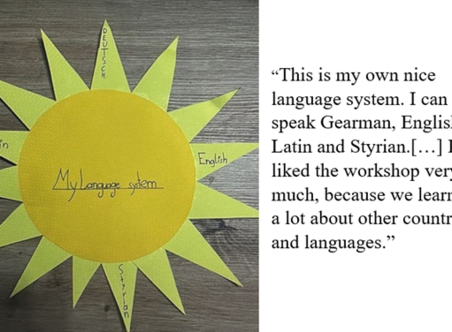 DEUTSCH
in
English
My Language system
Styrian
“This is my own nice
language system. I can
speak Gearman, Englis
Latin and Styrian.[…] I
liked the workshop very
much, because we learn
a lot about other countr
and languages.”